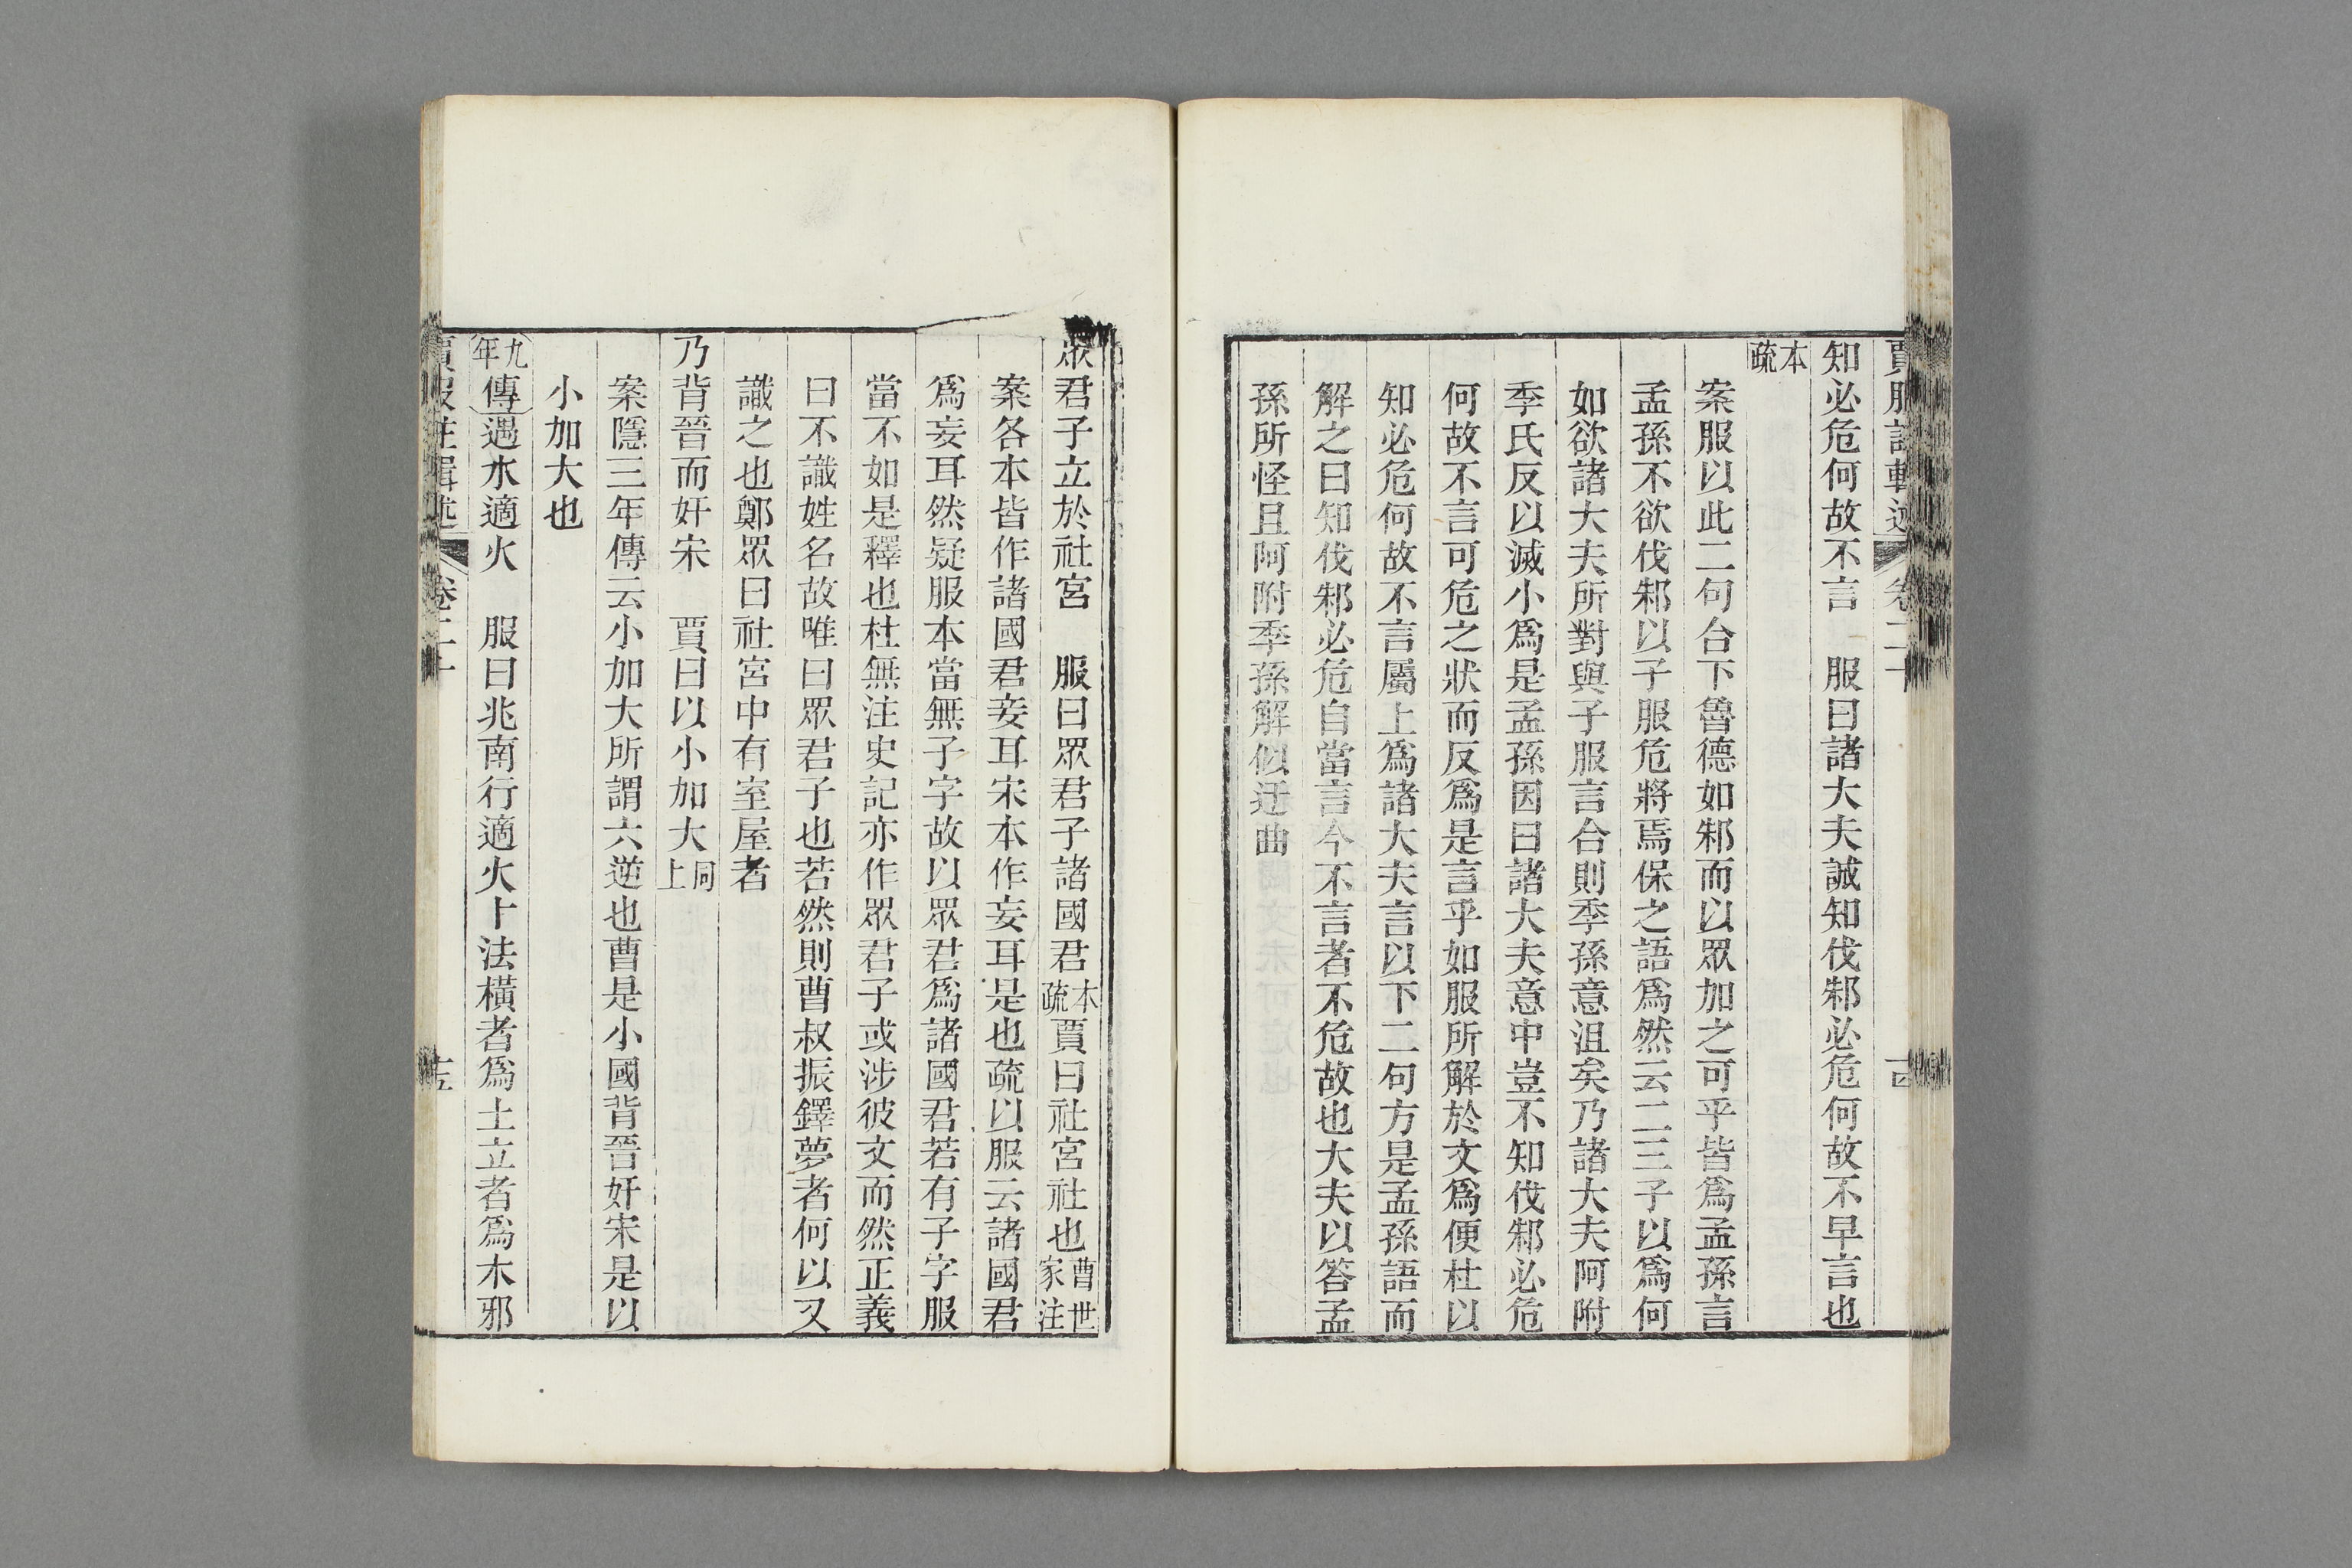 知必危何故不言　服曰諸大夫誠知伐邾必危何故不早言也
本疏
案服以此二句合下魯德如邾而以眾加之可乎皆爲孟孫言
孟孫不欲伐邾以子服危將焉保之語爲然云二三子以爲何
如欲諸大夫所對與子服言合則季孫意沮矣乃諸大夫阿附
季氏反以滅小爲是孟孫因曰諸大夫意中豈不知伐邾必危
何故不言可危之狀而反爲是言乎如服所解於文爲便杜以
知必危何故不言屬上爲諸大夫言以下二句方是孟孫語而
解之曰知伐邾必危自當言今不言者不危故也大夫以答孟
孫所怪且阿附季孫解似迂曲
眾君子立於社宮　服曰眾君子諸國君本疏賈曰社宮社也曹世家注
案各本皆作諸國君妾耳宋本作妄耳是也疏以服云諸國君
爲妄耳然疑服本當無子字故以眾君爲諸國君若有子字服
當不如是釋也杜無注史記亦作眾君子或涉彼文而然正義
曰不識姓名故唯曰眾君子也若然則曹叔振鐸夢者何以又
識之也鄭眾曰社宮中有室屋者
乃背晉而奸宋　賈曰以小加大同上
案隱三年傳云小加大所謂六逆也曹是小國背晉奸宋是以
小加大也
九年傳遇水適火　服曰兆南行適火卜法橫者爲土立者爲木邪
賈服注輯述　卷二十　十五